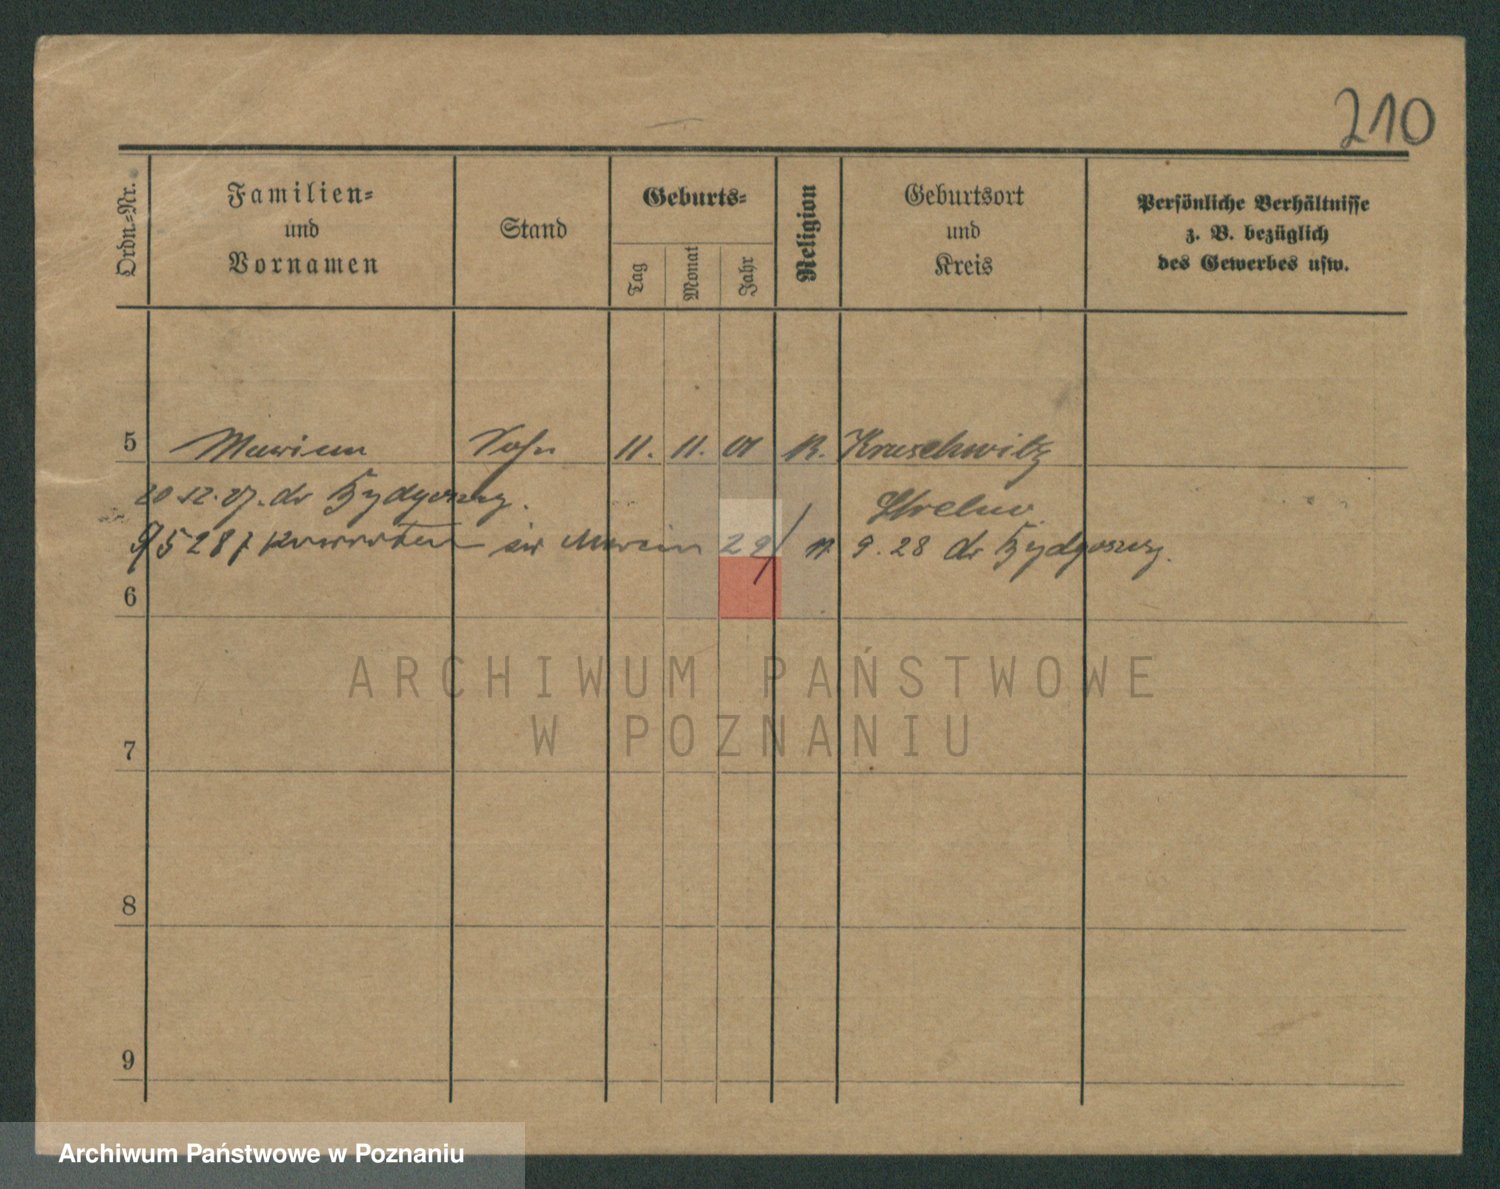 210
Ordn.-Nr.
Familien-
und
Vornamen
Stand
Geburts-
Tag
Monat
Jahr
Religion
Geburtsort
und
Kreis
Persönliche Verhältnisse
z. B. bezüglich
des Gewerbes usw.
5 Marian Sohn 11. 11. 01 K. Kruschwitz
20.12.27. do Bydgoszczy. Strelno
9/5 28 z św Marcin 29/ 9.28 do Bydgoszczy.
6
ARCHIWUM PAŃSTWOWE
W POZNANIU
7
8
9
Archiwum Państwowe w Poznaniu